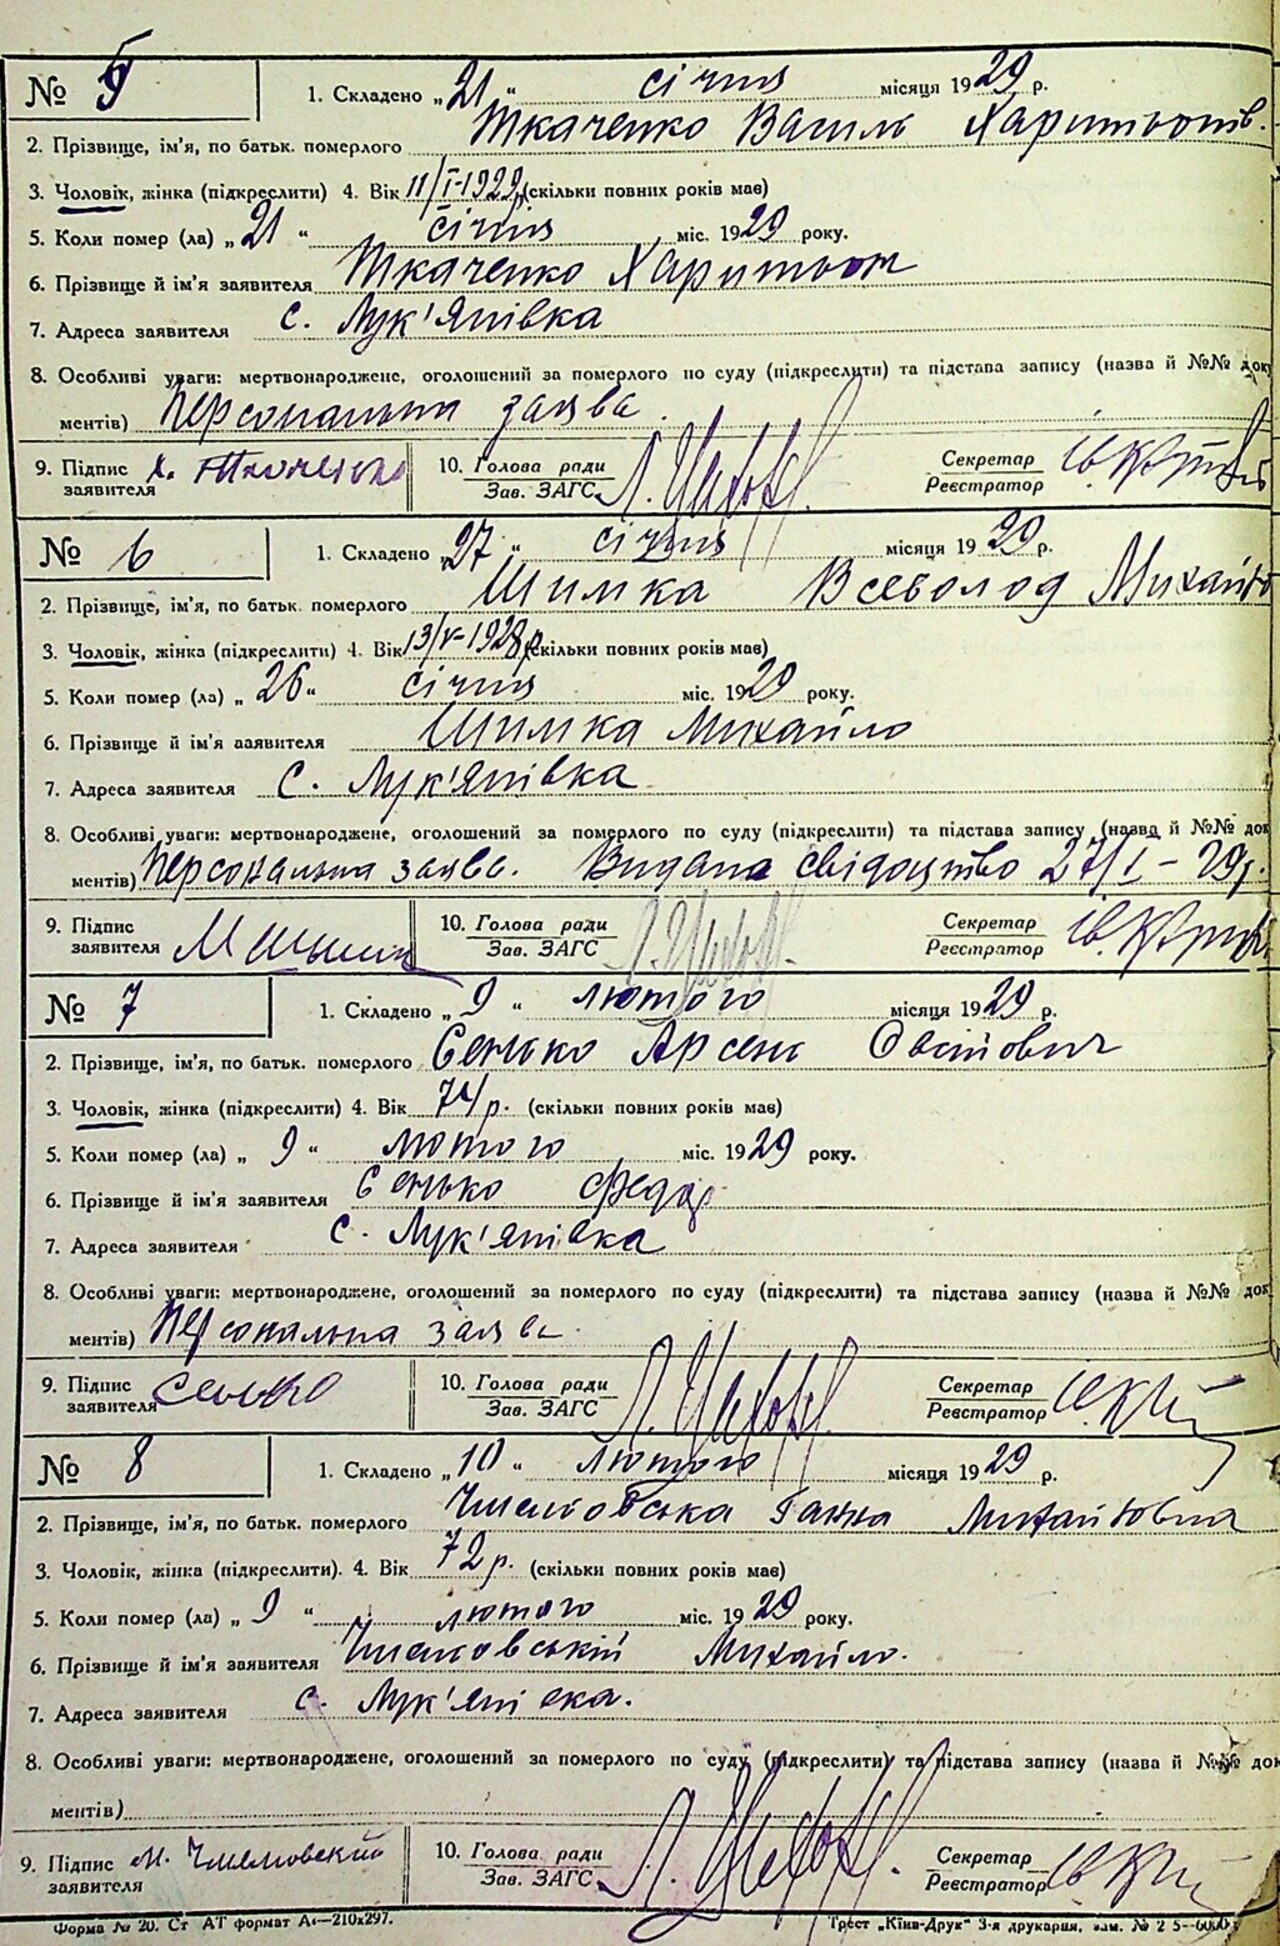 № 5 1. Складено „21“ січня місяця 1929 р.
2. Прізвище, ім'я, по батьк. померлого Ткаченко Василь Харитонов.
3. Чоловік, жінка (підкреслити) 4. Вік 11/I-1929р. (скільки повних років має)
5. Коли помер (ла) „21“ січня міс. 1929 року.
6. Прізвище й ім'я заявителя Ткаченко Харитон
7. Адреса заявителя с. Лук'янівка
8. Особливі уваги: мертвонароджене, оголошений за померлого по суду (підкреслити) та підстава запису (назва й №№ доку
ментів) Персональна заява.
9. Підпис заявителя Х. Ткаченко 10. Голова ради Секретар
Зав. ЗАГС Реєстратор
№ 6 1. Складено „27“ січня місяця 1929 р.
2. Прізвище, ім'я, по батьк. померлого Шимка Всеволод Михайло
3. Чоловік, жінка (підкреслити) 4. Вік 13/V-1928р. (скільки повних років має)
5. Коли помер (ла) „26“ січня міс. 1929 року.
6. Прізвище й ім'я заявителя Шимка Михайло
7. Адреса заявителя с. Лук'янівка
8. Особливі уваги: мертвонароджене, оголошений за померлого по суду (підкреслити) та підстава запису (назва й №№ док
ментів) Персональна заява. Видана свідоцтво 27/I-29р.
9. Підпис заявителя 10. Голова ради Секретар
Зав. ЗАГС Реєстратор
№ 7 1. Складено „9“ лютого місяця 1929 р.
2. Прізвище, ім'я, по батьк. померлого Сенько Арсень
3. Чоловік, жінка (підкреслити) 4. Вік 74/р. (скільки повних років має)
5. Коли помер (ла) „9“ лютого міс. 1929 року.
6. Прізвище й ім'я заявителя Сенько Федор
7. Адреса заявителя с. Лук'янівка
8. Особливі уваги: мертвонароджене, оголошений за померлого по суду (підкреслити) та підстава запису (назва й №№ док
ментів) Персональна заява.
9. Підпис заявителя Сенько 10. Голова ради Секретар
Зав. ЗАГС Реєстратор
№ 8 1. Складено „10“ лютого місяця 1929 р.
2. Прізвище, ім'я, по батьк. померлого Ганна Михайловна
3. Чоловік, жінка (підкреслити). 4. Вік 72р. (скільки повних років має)
5. Коли помер (ла) „9“ лютого міс. 1929 року.
6. Прізвище й ім'я заявителя Михайло.
7. Адреса заявителя с. Лук'янівка.
8. Особливі уваги: мертвонароджене, оголошений за померлого по суду (підкреслити) та підстава запису (назва й №№ док
ментів)
9. Підпис заявителя М. 10. Голова ради Секретар
Зав. ЗАГС Реєстратор
Форма № 20. Ст АТ формат А4—210x297. Трест „Київ-Друк“ 3-я друкарня, зам. №